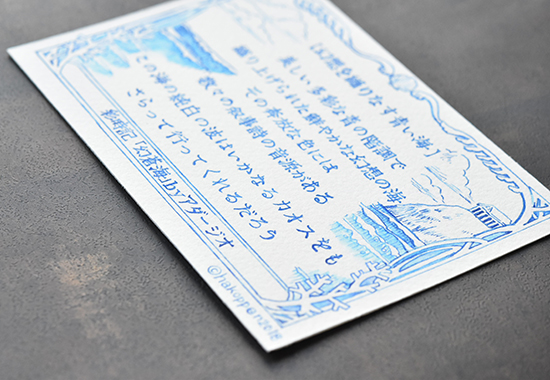 「幻想を織りなす青い海」
美しい多彩な青の階調で
織り上げられた鮮やかな幻想の海
その奔放な色には
数々の叙事詩の音源がある
この海の純白の波はいかなるカオスをも
さらって行ってくれるだろう
彩時記「幻蒼海」byアダージオ
©hakoppan2018